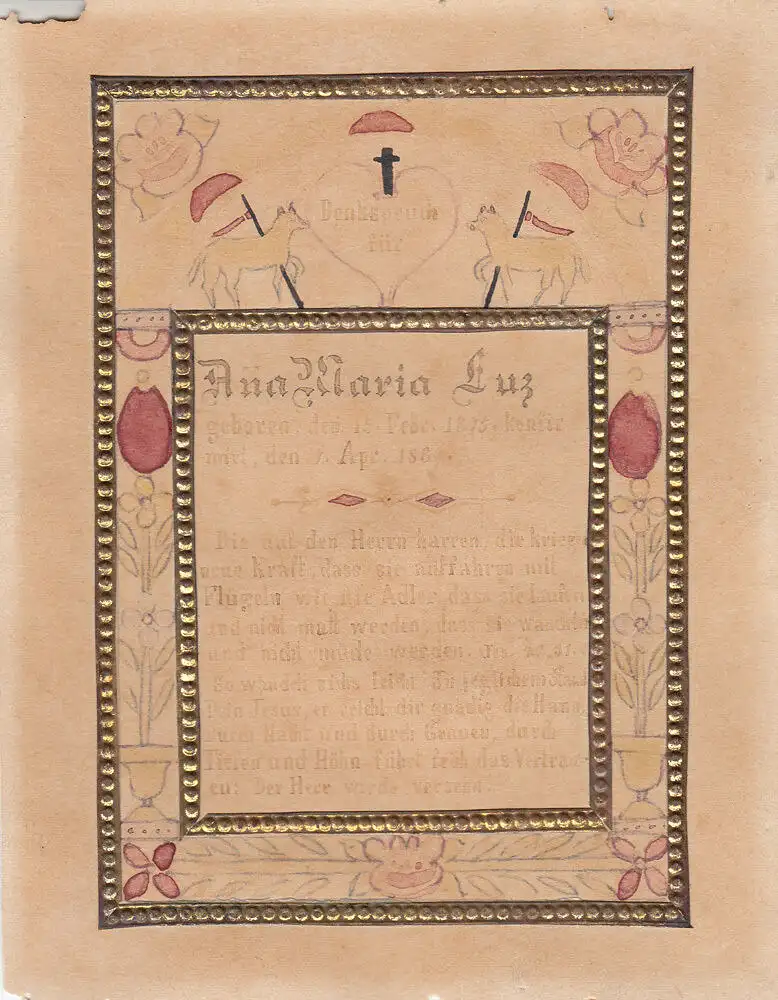 Denkspruch
für
Aña Maria Luz
geboren, den 15. Febr. 1875. konfir
mirt, den 7. Apr. 188
Die auf den Herrn harren, die kriegen
neue Kraft, dass sie auffahren mit
Flügeln wie die Adler, dass sie laufen
und nicht matt werden, dass sie wandeln
und nicht müde werden. Jes. 40, 31.
So wandelt sichs leicht In jeglichem Stand
Dein Jesus, er reicht dir gnädig die Hand,
durch Nacht und durch Grauen, durch
Tiefen und Höhn führt früh das Vertrau-
en: Der Herr wirds versehn.